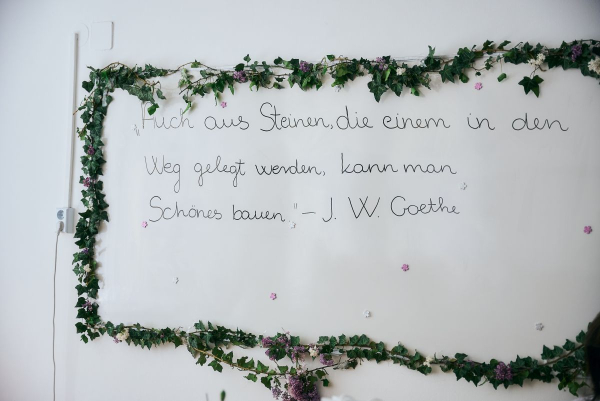 „Auch aus Steinen, die einem in den
Weg gelegt werden, kann man
Schönes bauen." – J. W. Goethe